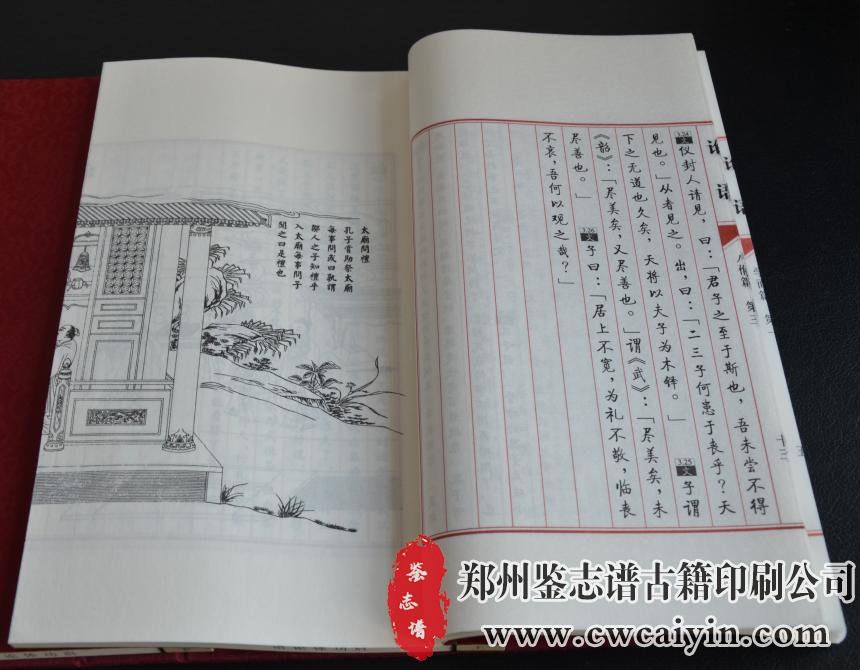 3.24 文 仪封人请见，曰：「君子之至于斯也，吾未尝不得
见也。」从者见之。出，曰：「二三子何患于丧乎？天
下之无道也久矣，天将以夫子为木铎。」 3.25 文 子谓
《韶》：「尽美矣，又尽善也。」谓《武》：「尽美矣，未
尽善也。」 3.26 文 子曰：「居上不宽，为礼不敬，临丧
不哀，吾何以观之哉？」
太廟問禮
孔子嘗助祭太廟
每事問或曰孰謂
鄹人之子知禮乎
入太廟每事問子
聞之曰是禮也
八佾篇 第三
十三
鉴志谱
郑州鉴志谱古籍印刷公司
www.cwcaiyin.com